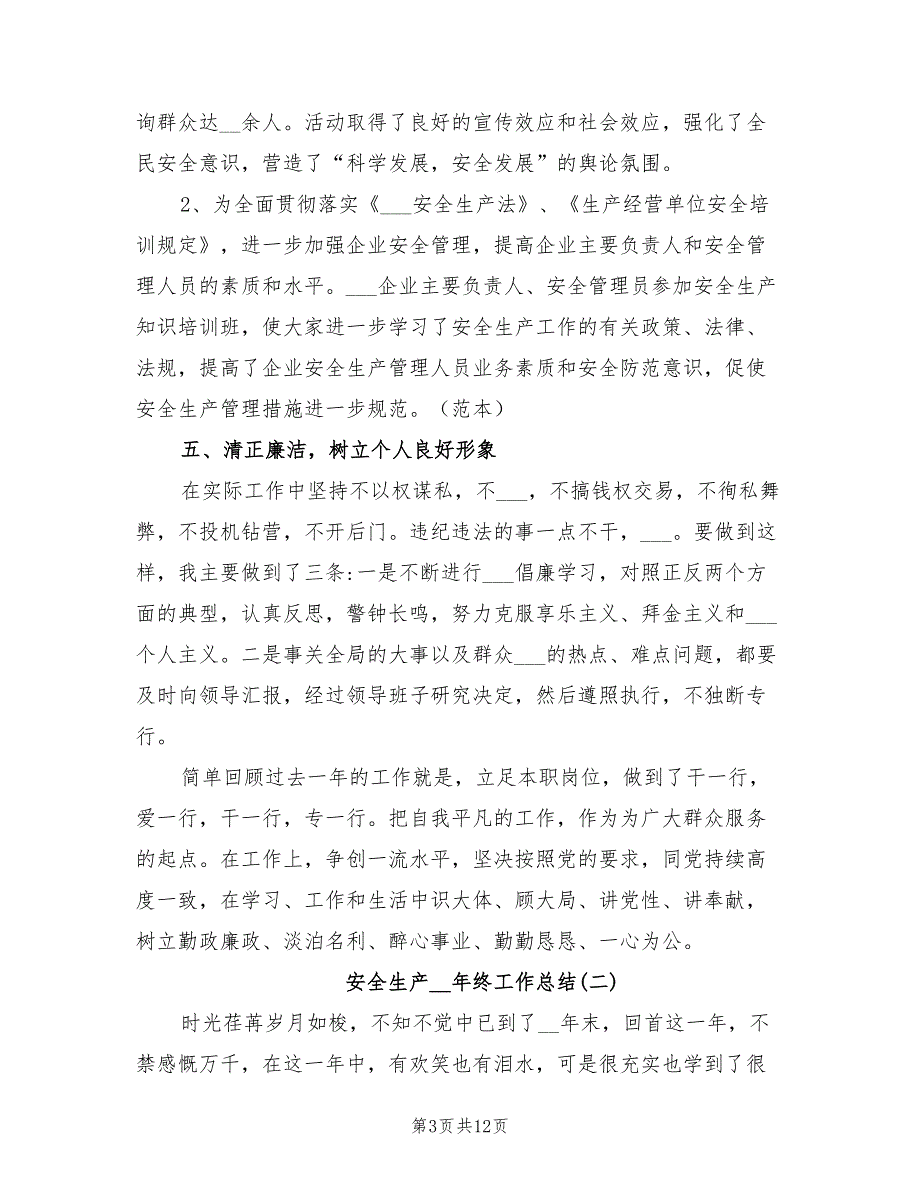 询群众达__余人。活动取得了良好的宣传效应和社会效应，强化了全
民安全意识，营造了“科学发展，安全发展”的舆论氛围。
2、为全面贯彻落实《___安全生产法》、《生产经营单位安全培
训规定》，进一步加强企业安全管理，提高企业主要负责人和安全管
理人员的素质和水平。___企业主要负责人、安全管理员参加安全生产
知识培训班，使大家进一步学习了安全生产工作的有关政策、法律、
法规，提高了企业安全生产管理人员业务素质和安全防范意识，促使
安全生产管理措施进一步规范。（范本）
五、清正廉洁，树立个人良好形象
在实际工作中坚持不以权谋私，不___，不搞钱权交易，不徇私舞
弊，不投机钻营，不开后门。违纪违法的事一点不干，___。要做到这
样，我主要做到了三条:一是不断进行___倡廉学习，对照正反两个方
面的典型，认真反思，警钟长鸣，努力克服享乐主义、拜金主义和___
个人主义。二是事关全局的大事以及群众___的热点、难点问题，都要
及时向领导汇报，经过领导班子研究决定，然后遵照执行，不独断专
行。
简单回顾过去一年的工作就是，立足本职岗位，做到了干一行，
爱一行，干一行，专一行。把自我平凡的工作，作为为广大群众服务
的起点。在工作上，争创一流水平，坚决按照党的要求，同党持续高
度一致，在学习、工作和生活中识大体、顾大局、讲党性、讲奉献，
树立勤政廉政、淡泊名利、醉心事业、勤勤恳恳、一心为公。
安全生产__年终工作总结(二)
时光荏苒岁月如梭，不知不觉中已到了__年末，回首这一年，不
禁感慨万千，在这一年中，有欢笑也有泪水，可是很充实也学到了很
第3页共12页